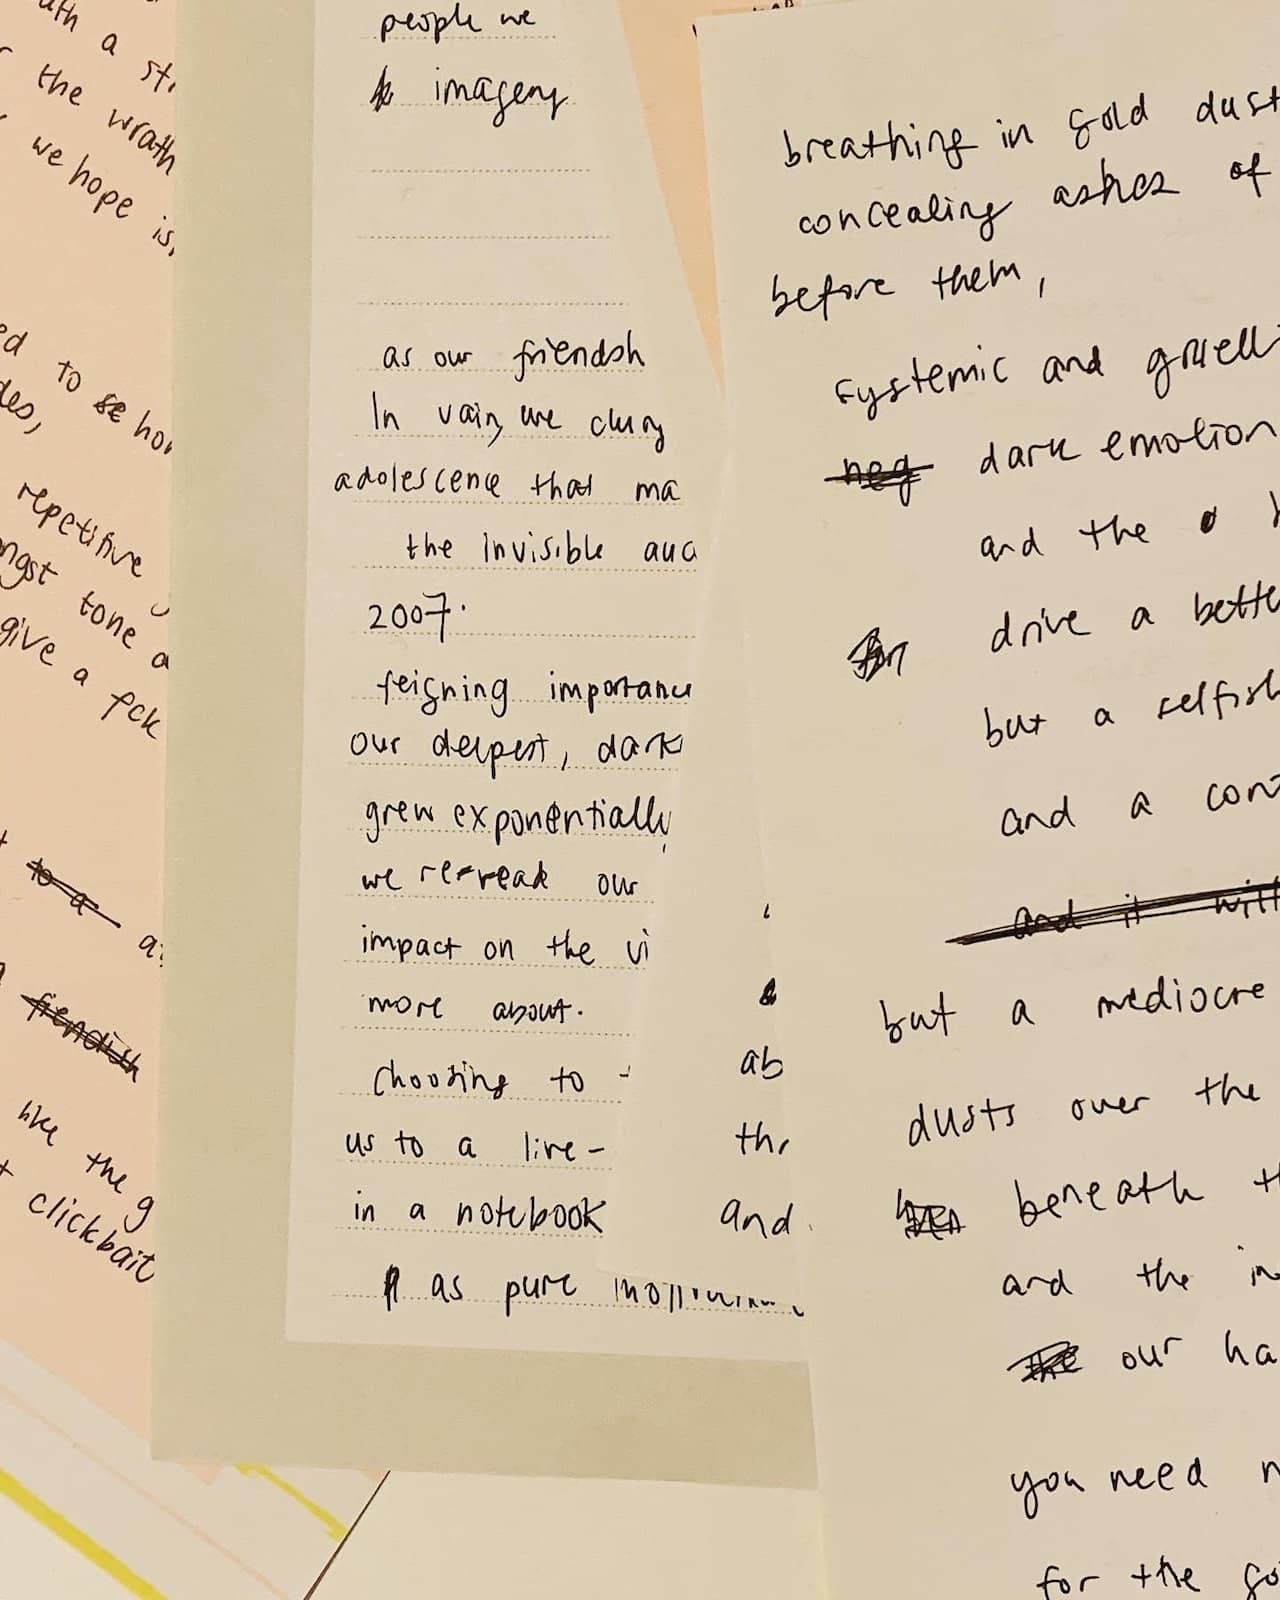 a st
the wrath
we hope is,
ed to se hor
des,
repetitive
ngst tone a
give a fck
to a
a
fiendish
like the g
clickbait
people we
imagery
as our friendsh
In vain, we clung
adolescence that ma
the invisible aud
2007.
feigning importance
our deepest, dark
grew exponentially
we re-read our
impact on the vi
more about.
choosing to
us to a live-
in a notebook
as pure
ab
thr
and
breathing in gold dust
concealing ashes of
before them,
systemic and gruelli
neg dark emotion
and the
drive a bette
but a selfish
and a con
and it will
but a mediocre
dusts over the
beneath th
and the in
the our ha
you need n
for the go